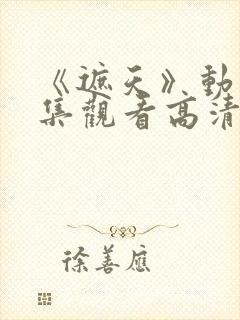 《遮天》動
集觀看高清
徐善應